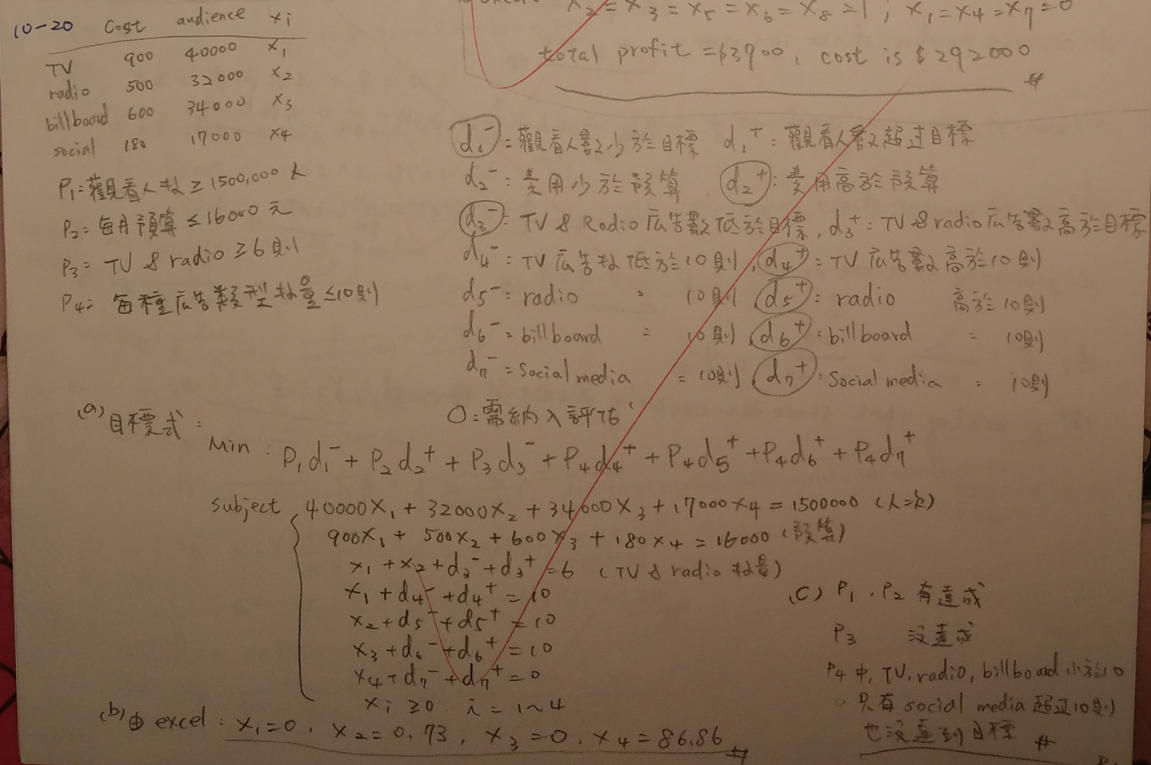 x2 = x3 = x5 = x6 = x8 = 1 ; x1 = x4 = x7 = 0
total profit = 63900, cost is $292000 #
10-20 Cost audience xi
TV 900 40000 x1
radio 500 32000 x2
billboard 600 34000 x3
social 180 17000 x4
P1:觀看人次 ≥ 1500,000 人
P2:每月預算 ≤ 16000 元
P3:TV & radio ≥ 6則
P4:每種广告類型數量 ≤ 10則
d1⁻:觀看人數少於目標 d1⁺:觀看人數超过目標
d2⁻:費用少於預算 d2⁺:費用高於預算
d3⁻:TV & Radio 広告數低於目標, d3⁺:TV & radio 広告數高於目標
d4⁻:TV 広告數低於10則, d4⁺:TV 広告數高於10則
d5⁻:radio 10則 d5⁺:radio 高於10則
d6⁻:billboard = 10則, d6⁺:billboard = 10則
d7⁻:Social media = 10則, d7⁺:Social media = 10則
O:需納入評估
(a) 目標式:
Min : P1d1⁻ + P2d2⁺ + P3d3⁻ + P4d4⁺ + P4d5⁺ + P4d6⁺ + P4d7⁺
subject 40000x1 + 32000x2 + 34000x3 + 17000x4 = 1500000 (人次)
900x1 + 500x2 + 600x3 + 180x4 = 16000 (預算)
x1 + x2 + d3⁻ + d3⁺ = 6 (TV & radio 數量)
x1 + d4⁻ + d4⁺ = 10
x2 + d5⁻ + d5⁺ = 10
x3 + d6⁻ + d6⁺ = 10
x4 + d7⁻ + d7⁺ = 0
xi ≥ 0 i = 1~4
(b) 由 excel : x1=0, x2=0.73, x3=0, x4=86.86 #
(c) P1、P2 有達成
P3 沒達成
P4 中, TV, radio, billboard 小於10
只有 social media 超过10則
也沒達到目標 #